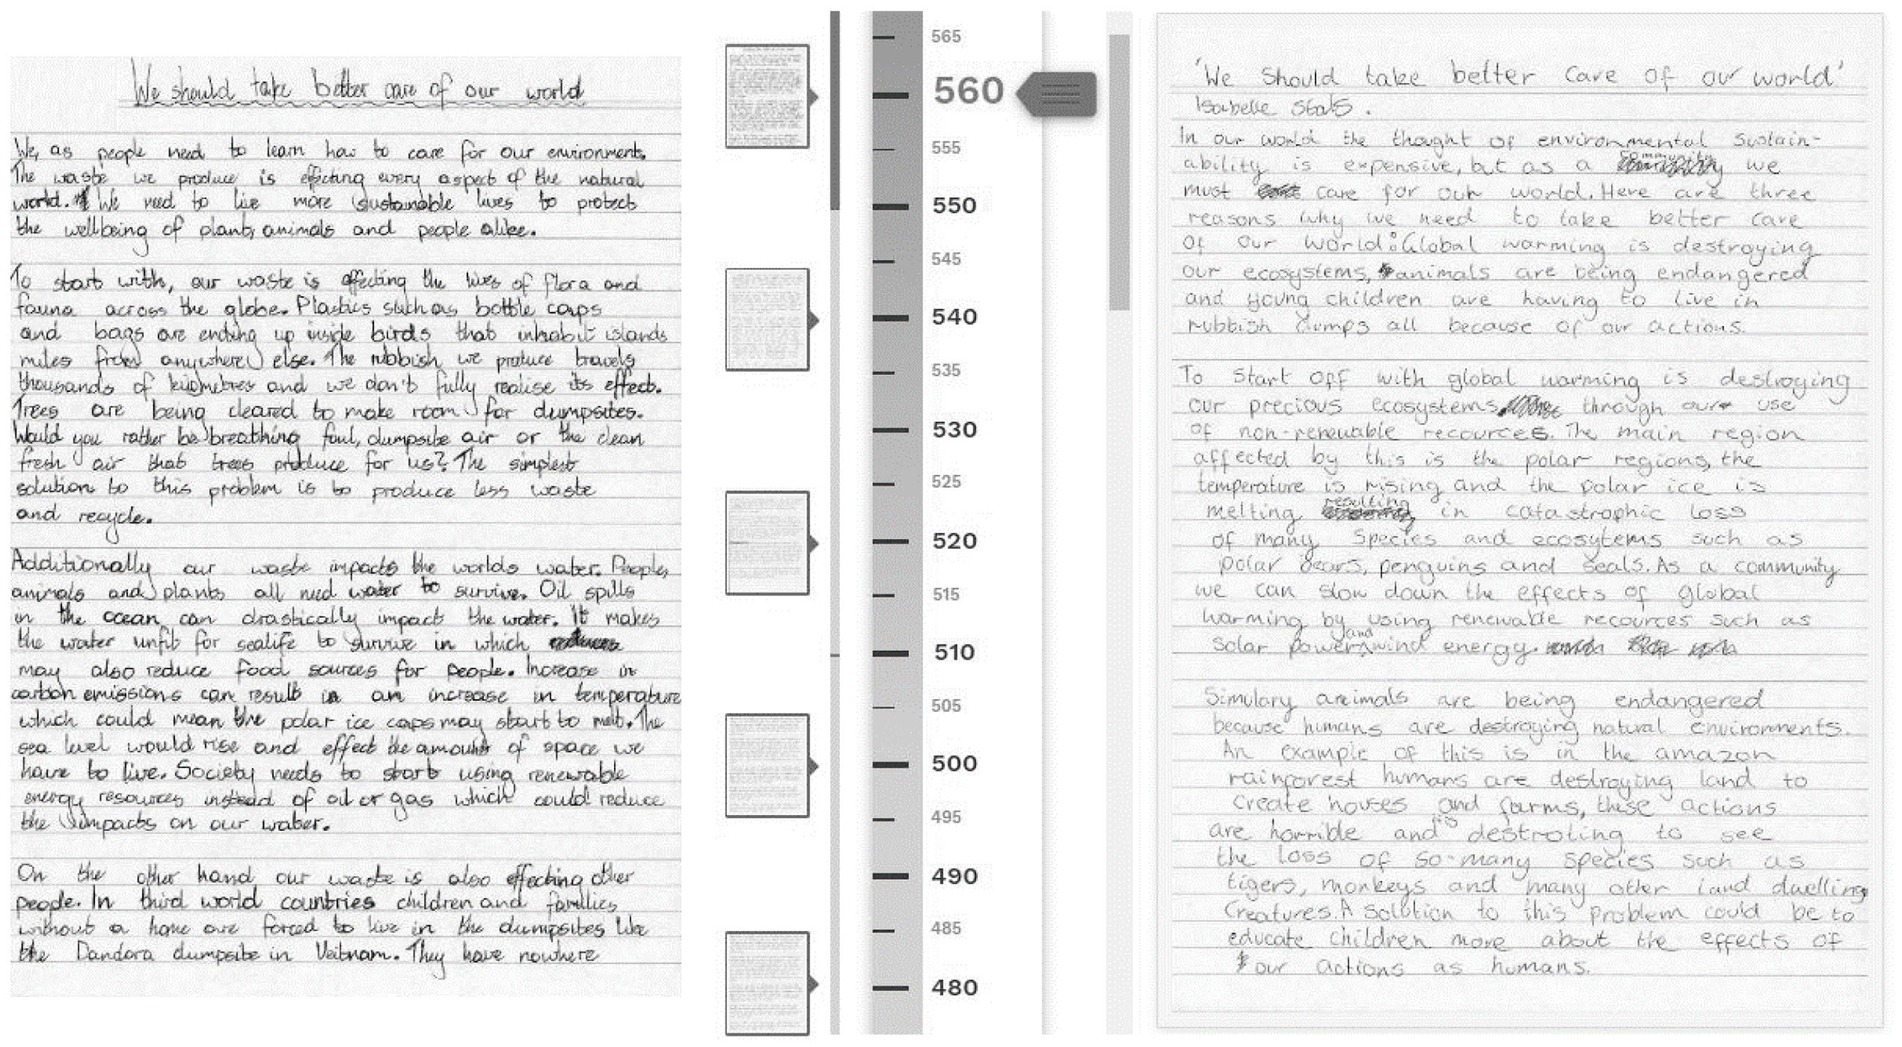 We should take better care of our world
We, as people need to learn how to care for our environments.
The waste we produce is effecting every aspect of the natural
world. We need to live more sustainable lives to protect
the wellbeing of plants, animals and people alike.
To start with, our waste is effecting the lives of flora and
fauna across the globe. Plastics such as bottle caps
and bags are ending up inside birds that inhabit islands
miles from anywhere else. The rubbish we produce travels
thousands of kilometres and we don't fully realise its effect.
Trees are being cleared to make room for dumpsites.
Would you rather be breathing foul, dumpsite air or the clean
fresh air that trees produce for us? The simplest
solution to this problem is to produce less waste
and recycle.
Additionally our waste impacts the worlds water. People,
animals and plants all need water to survive. Oil spills
in the ocean can drastically impact the water. It makes
the water unfit for sealife to survive in which
may also reduce food sources for people. Increase in
carbon emissions can result in an increase in temperature
which could mean the polar ice caps may start to melt. The
sea level would rise and effect the amount of space we
have to live. Society needs to start using renewable
energy resources instead of oil or gas which could reduce
the impacts on our water.
On the other hand our waste is also effecting other
people. In third world countries children and families
without a home are forced to live in the dumpsites like
the Dandora dumpsite in Veitnam. They have nowhere
565
560
555
550
545
540
535
530
525
520
515
510
505
500
495
490
485
480
'We should take better care of our world'
Isabelle
In our world the thought of environmental sustain-
ability is expensive, but as a community we
must care for our world. Here are three
reasons why we need to take better care
of our world: Global warming is destroying
our ecosystems, animals are being endangered
and young children are having to live in
rubbish dumps all because of our actions.
To start off with global warming is destroying
our precious ecosystems through our use
of non-renewable recources. The main region
affected by this is the polar regions, the
temperature is rising and the polar ice is
melting resulting in catastrophic loss
of many species and ecosytems such as
polar bears, penguins and seals. As a community
we can slow down the effects of global
warming by using renewable recources such as
solar power and wind energy.
Simulary animals are being endangered
because humans are destroying natural environments.
An example of this is in the amazon
rainforest humans are destroying land to
create houses and farms, these actions
are horrible and its destroting to see
the loss of so-many species such as
tigers, monkeys and many other land dwelling
creatures. A solution to this problem could be to
educate children more about the effects of
our actions as humans.